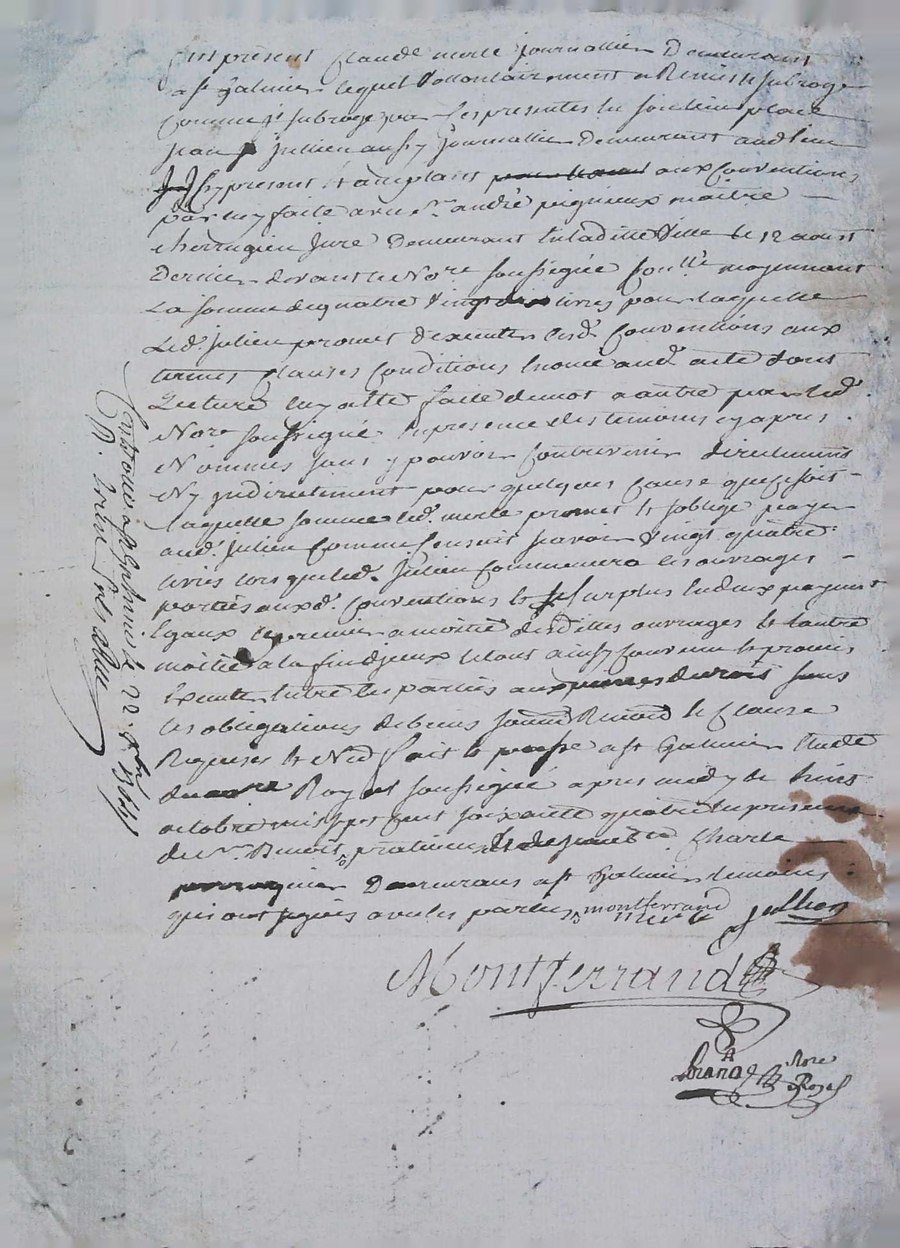 fut présent Claude merle journallier Demeurant
a st Galmier lequel vollontairement a Remis et subrogé
comme il subroge par ces presentes en son lieu place
jean jullien aussy journallier Demeurant aud. lieu
cy present et acceptant aux Conventions
par luy faite avec sr. andré peigneux maitre
chirurgien juré Demeurant en laditte Ville le 12 aoust
Dernier devant le Nore soussigné moyennant
la somme de quatre vingt dix livres pour laquelle
Led. julien promet dexecuter lesd. Conventions aux
termes Clauses Conditions enoncé aud. acte dont
Lecture luy a etté faite de mot a autre par led.
Nore soussigné en presence des temoins cy apres
Nommés sans y pouvoir Contrevenir directement
Ny indirectement pour quelques Cause que ce soit
laquelle somme led. merle promet et soblige payer
aud. julien comme sensuit scavoir vingt quatre
livres lorsque led. Julien commencera les ouvrages
portés auxd. Conventions et le surplus en deux payement
Egaux le premier a moitié desdittes ouvrages et l'autre
moitié a la fin diceux le tout ainsy convenu et promis
Executer entre les parties aux peines de droit sous
les obligations de biens soumis Renond et Clause
Requises et Ned fait et passé a st Galmier Etude
du Royal soussigné apres midy le huit
octobre mil sept cent soixante quatre en presence
de sr. Benoit et de Charle
Demeurans a st Galmier temoins
qui ont signés avec les parties montferrand
jullien
Montferrand
Nore
Royal
Controllé a st Galmier le 22. 8bre 1764
R. treize sols